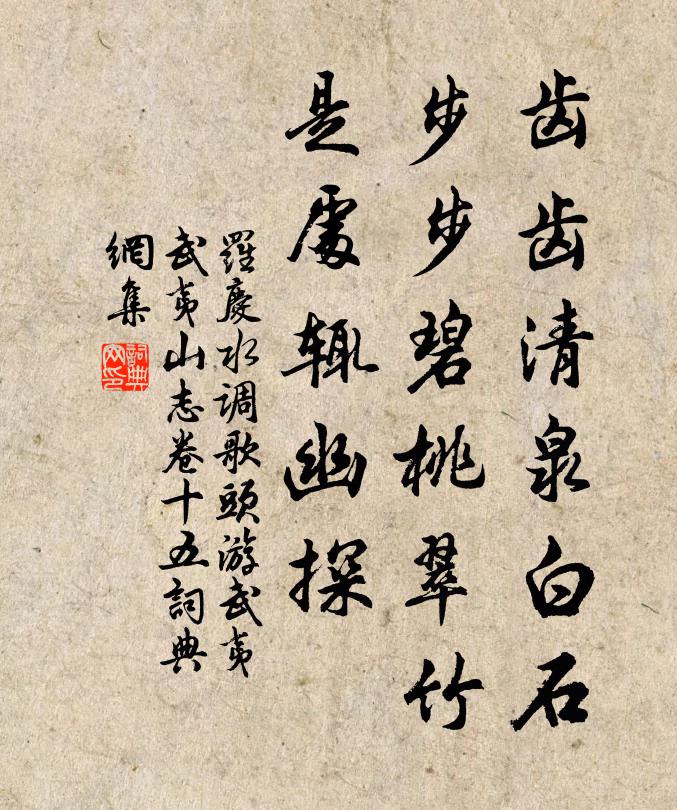 齿齿清泉白石
步步碧桃翠竹
是處辄幽探
羅慶水调歌頭游武夷
武夷山志卷十五詞典
網集
詞典
网印